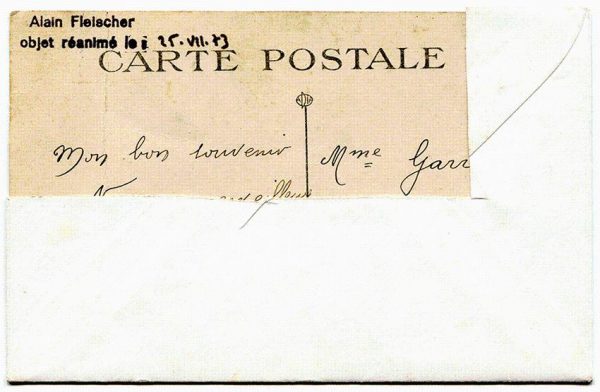 Alain Fleischer
objet réanimé le : 25.VII.73
CARTE POSTALE
Mon bon souvenir
Mme Garr